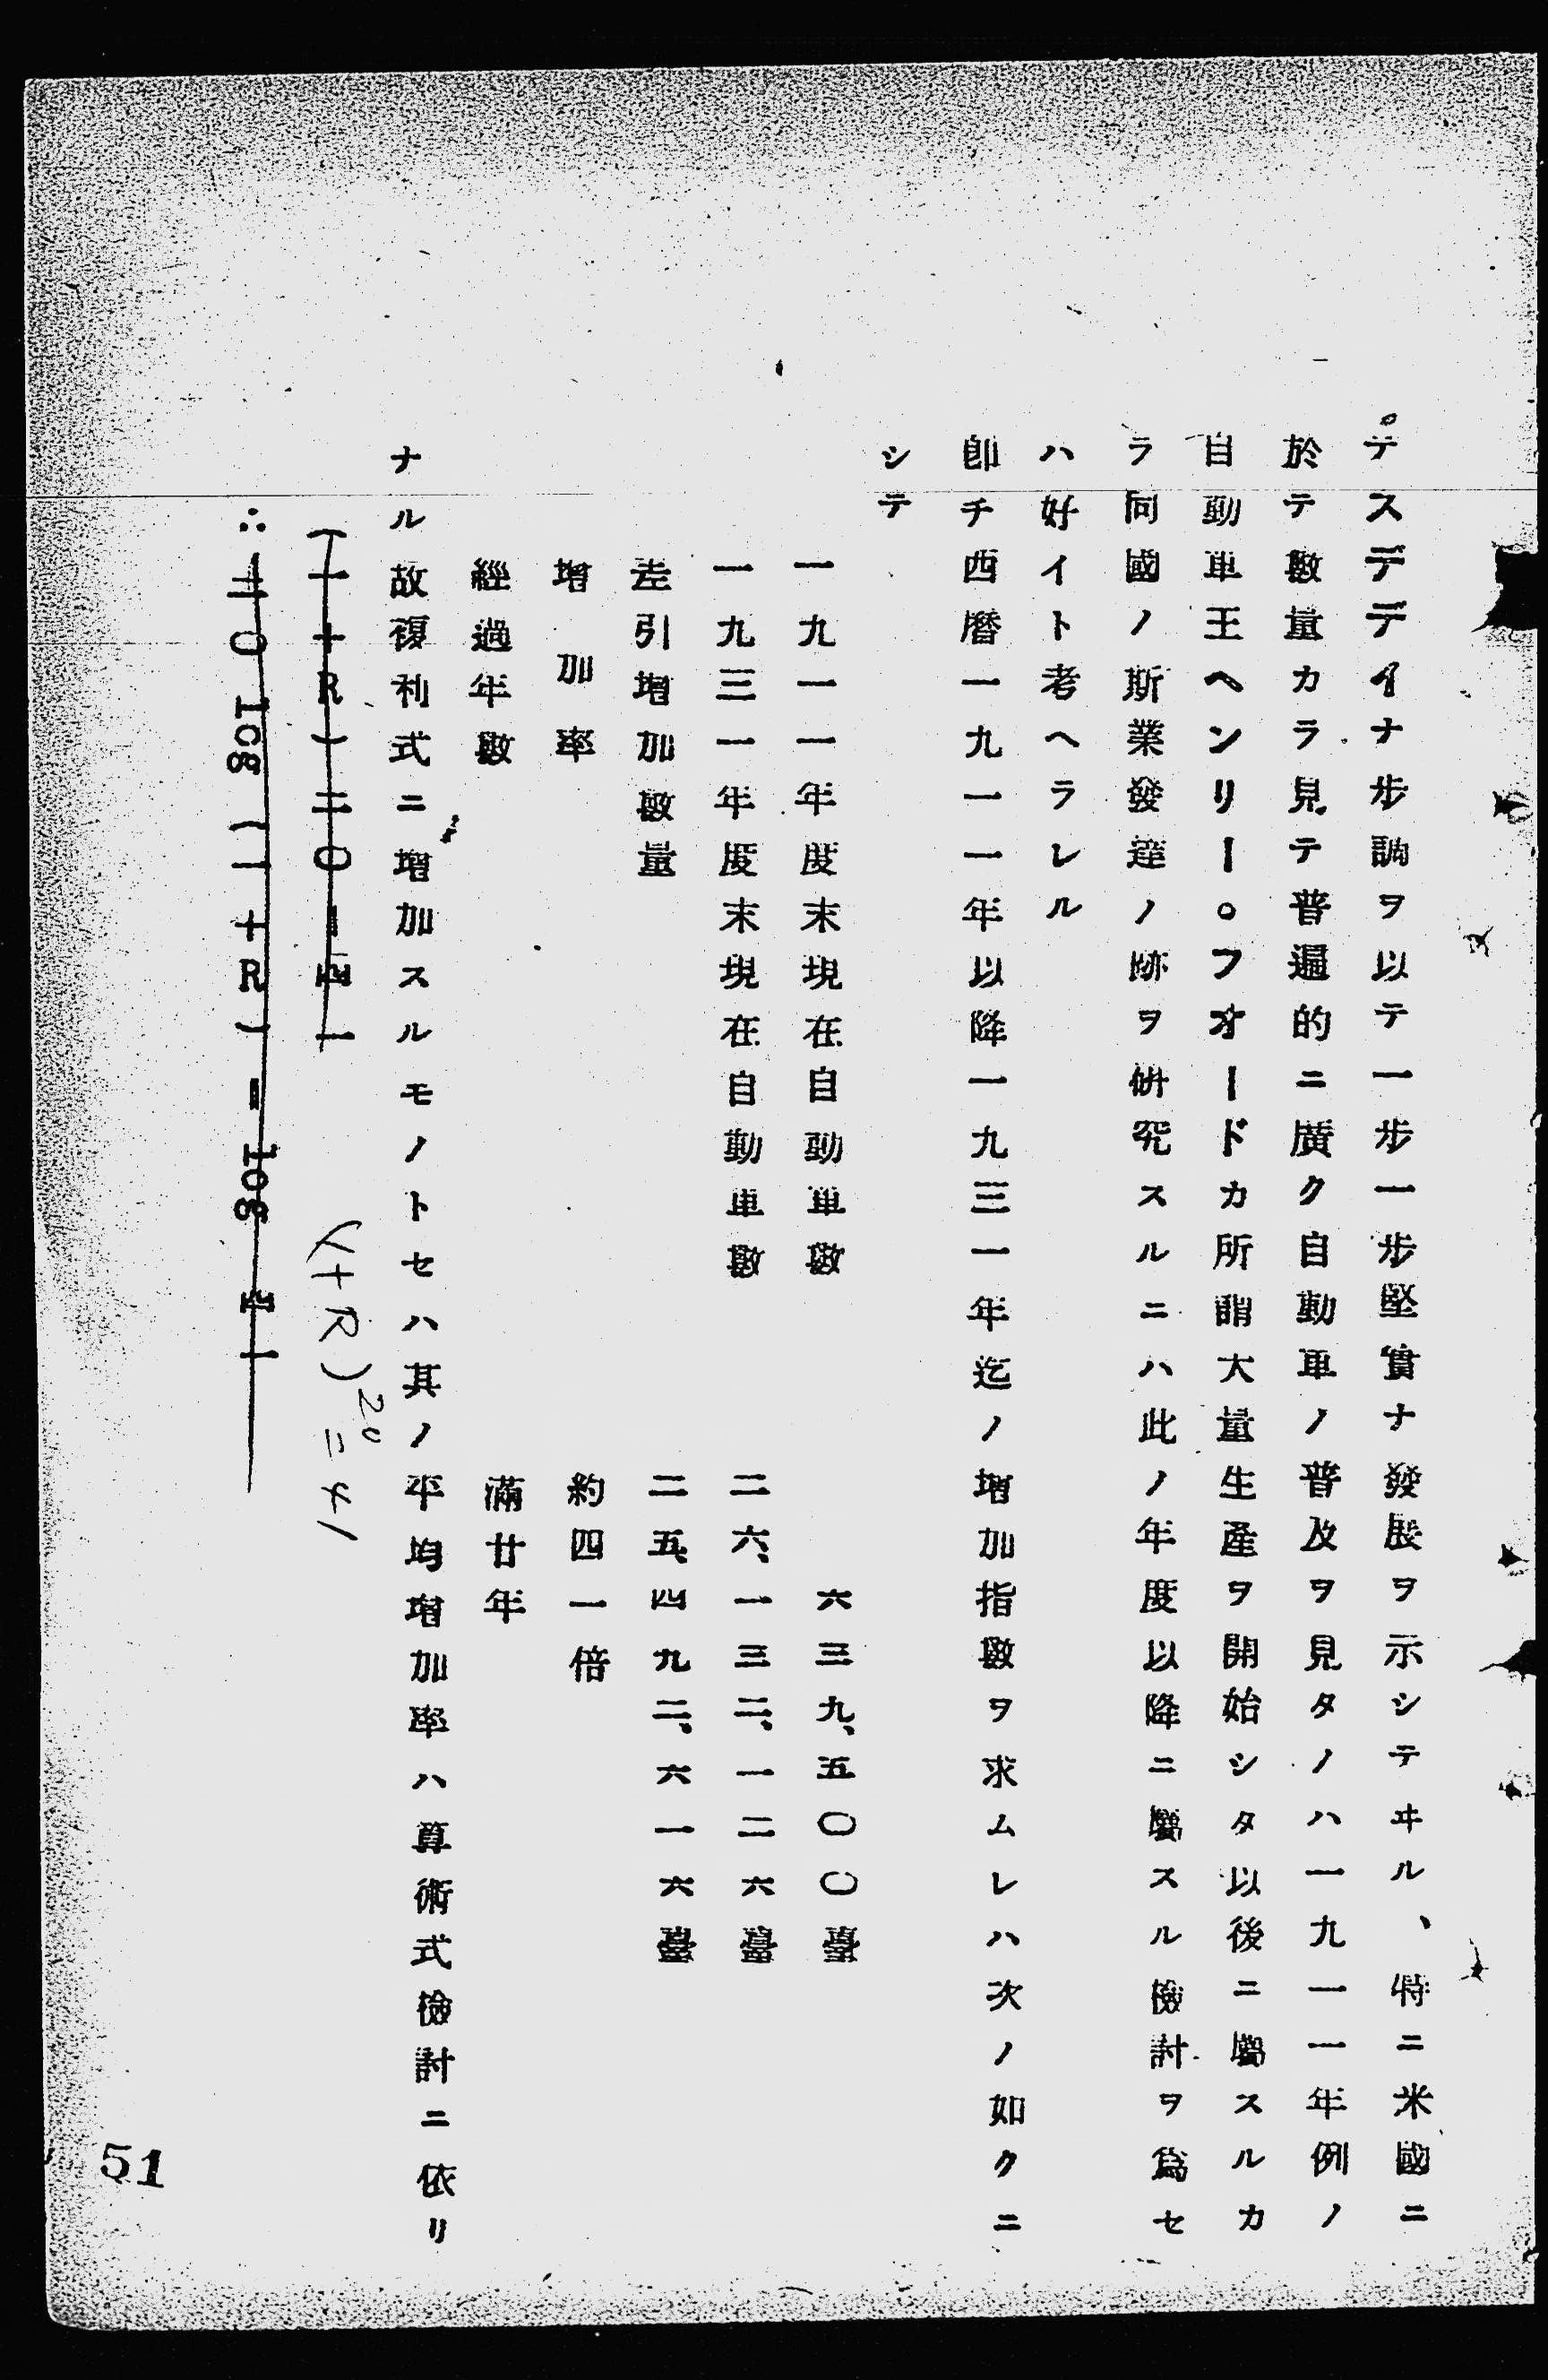 テステデイナ歩調ヲ以テ一歩一歩堅實ナ發展ヲ示シテヰル、特ニ米國ニ
於テ數量カラ見テ普遍的ニ廣ク自動車ノ普及ヲ見タノハ一九一一年例ノ
自動車王ヘンリー。フオードカ所謂大量生產ヲ開始シタ以後ニ屬スルカ
ラ同國ノ斯業發達ノ跡ヲ硏究スルニハ此ノ年度以降ニ屬スル檢討ヲ爲セ
ハ好イト考ヘラレル
卽チ西曆一九一一年以降一九三一年迄ノ增加指數ヲ求ムレハ次ノ如クニ
シテ
一九一一年度末現在自動車數 六三九、五〇〇臺
一九三一年度末現在自動車數 二六、一三二、一二六臺
差引增加數量 二五、四九二、六一六臺
增加率 約四一倍
經過年數 滿廿年
ナル故複利式ニ增加スルモノトセハ其ノ平均增加率ハ算術式檢討ニ依リ
(一+R)二〇=四一
(1+R)²⁰=41
∴二〇log(一+R)=log四一
51